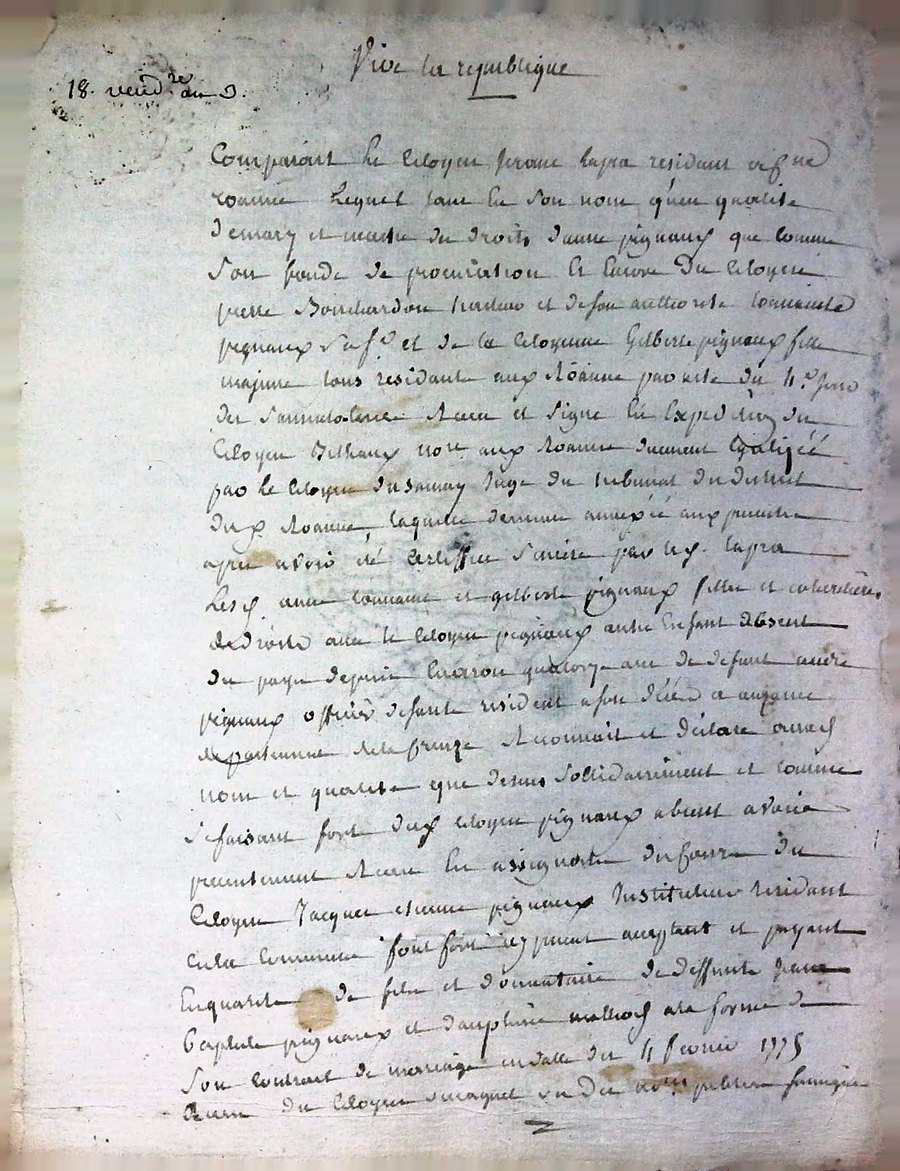 Vive la republique
18. vend.re an 3.
Comparait le Citoyen lapra residant
roanne lequel tant en son nom qu'en qualité
de mary et maitre des droits danne pignaux que comme
son fondé de procuration et encore du Citoyen
pierre Bouchardon et de son authorité
pignaux sa f.e et de la Citoyenne Gilberte pignaux fille
majeure tous residants aux Roanne par acte du 4.e
des Sanculotides Recu et signé en Expedition du
Citoyen not.re aux Roanne duement légalizéé
par le Citoyen Juge du tribunal du district
dud Roanne laquelle demeure annexéé aux presentes
apres avoir été certiffiée sincere par led. lapra
Lesd anne et gilberte pignaux filles et coheretieres
de droits avec le Citoyen pignaux autre Enfant absent
du pays depuis Environ quatorze ans de defunt
pignaux officier de santé résident a son décéd a auzance
departement de la Creuze Reconnait et déclare auxd
nom et qualité que dessus sollidairement et comme
se faisant fort dud Citoyen pignaux absent avoir
presentement Recu en assignats du Citoyen
Jacques etienne pignaux Instituteur residant
en la Commune font fort icy present acceptant et payant
En qualité de fils et donnataire de deffunts Jean
Baptiste pignaux et dauphine a la forme de
son contrat de mariage en datte du 4 fevrier 1775
Recu du Citoyen not.re public